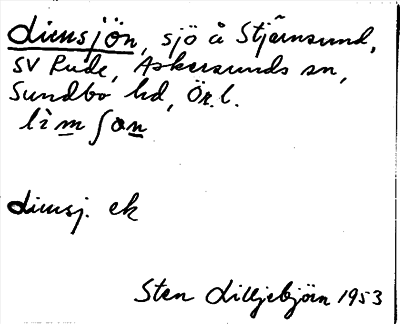 Limsjön, sjö å Stjärnsund,
SV Rude, Askersunds sn,
Sundbo hd, Ör. l.
lìmʃɷn
Limsj. ek
Sten Lilljebjörn 1953